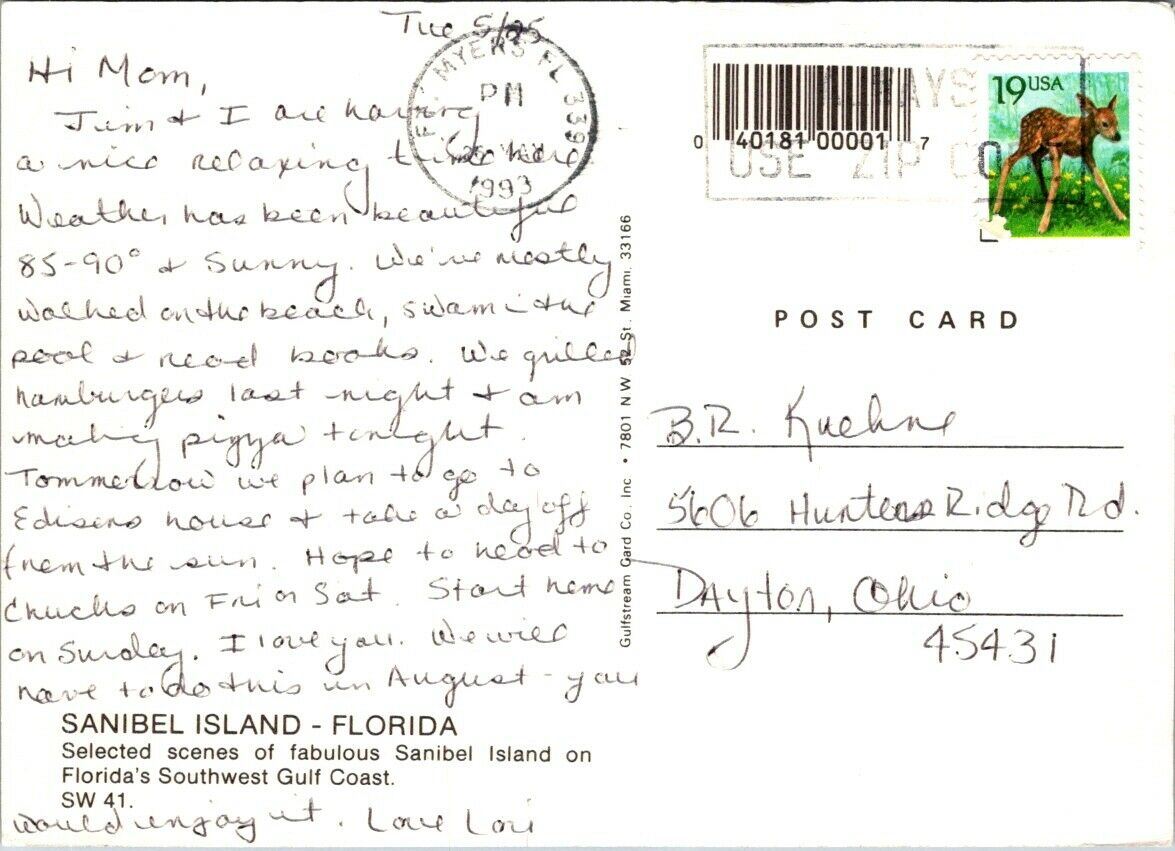 Tue 5/25
Hi Mom,
Jim & I are having
a nice relaxing time here
Weather has been beautiful
85-90° & Sunny. We've mostly
walked on the beach, swam in the
pool & read books. We grilled
hamburgers last night & am
making pizza tonight.
Tommorrow we plan to go to
Edisons house & take a day off
from the sun. Hope to head to
Chucks on Fri or Sat. Start home
on Sunday. I love you. We will
have to do this in August - you
SANIBEL ISLAND - FLORIDA
Selected scenes of fabulous Sanibel Island on
Florida's Southwest Gulf Coast.
SW 41.
would enjoy it. Love Lori
FT. MYERS FL 339
PM
1993
Gulfstream Card Co., Inc • 7801 NW 52 St. Miami, 33166
0 40181 00001 7
ALWAYS
USE ZIP CO
19 USA
POST CARD
B.R. Kuehne
5606 Hunters Ridge Rd.
Dayton, Ohio
45431